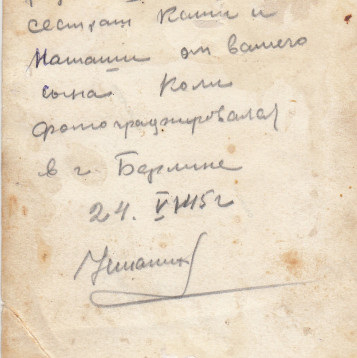 сестрам Кати и
Наташи от вашего
сына Коли
фотографировался
в г. Берлине
24. V 1945 г